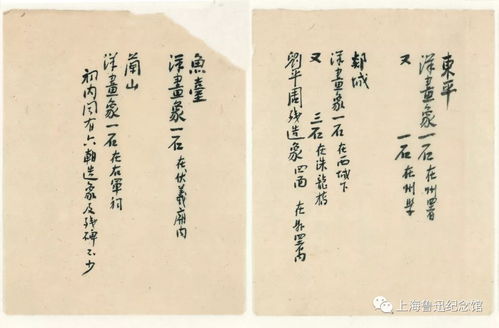 東平
漢畫象一石 在州署
又 一石 在州學
郯城
漢畫象一石 在西城下
又 三石 在洙龍
劉平周殘造象四面 在縣署內
魚臺
漢畫象一石 在伏羲廟內
蘭山
漢畫象一石 在右軍祠
祠內有六朝造象及殘碑不少
上海鲁迅纪念馆